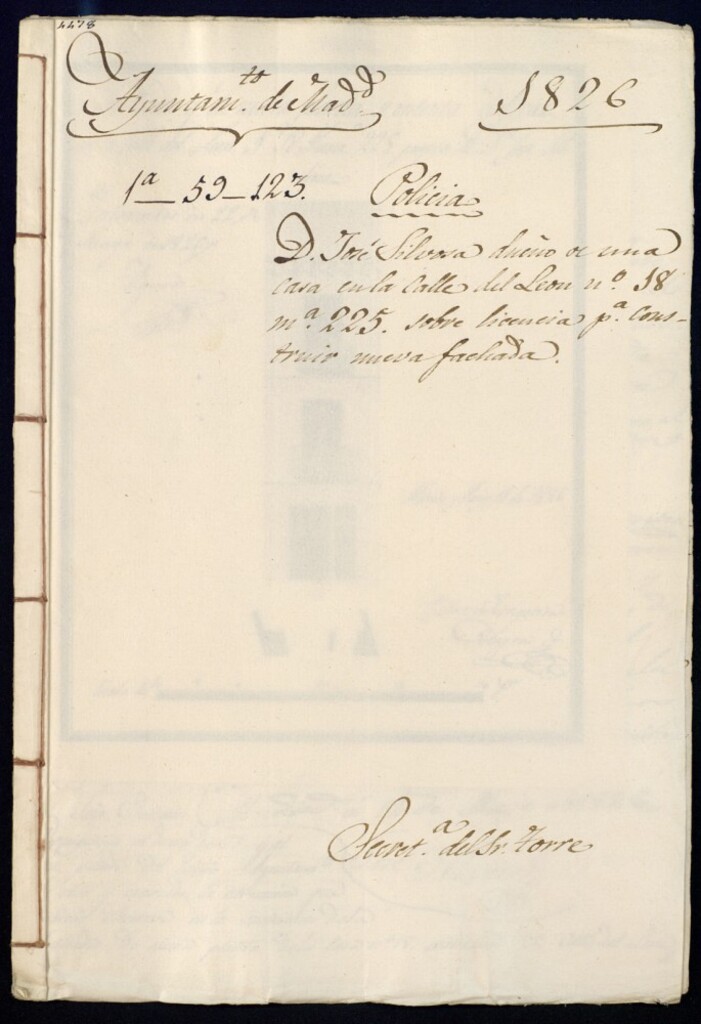 4478
Ayuntam.to de Mad.d 1826
1a _ 59 _ 123. Policia
D. José Silvosa dueño de una
casa en la Calle del Leon nº. 18
m.a 225. sobre licencia p.a cons-
truir nueva fachada.
Secret.a del Sr. Torre